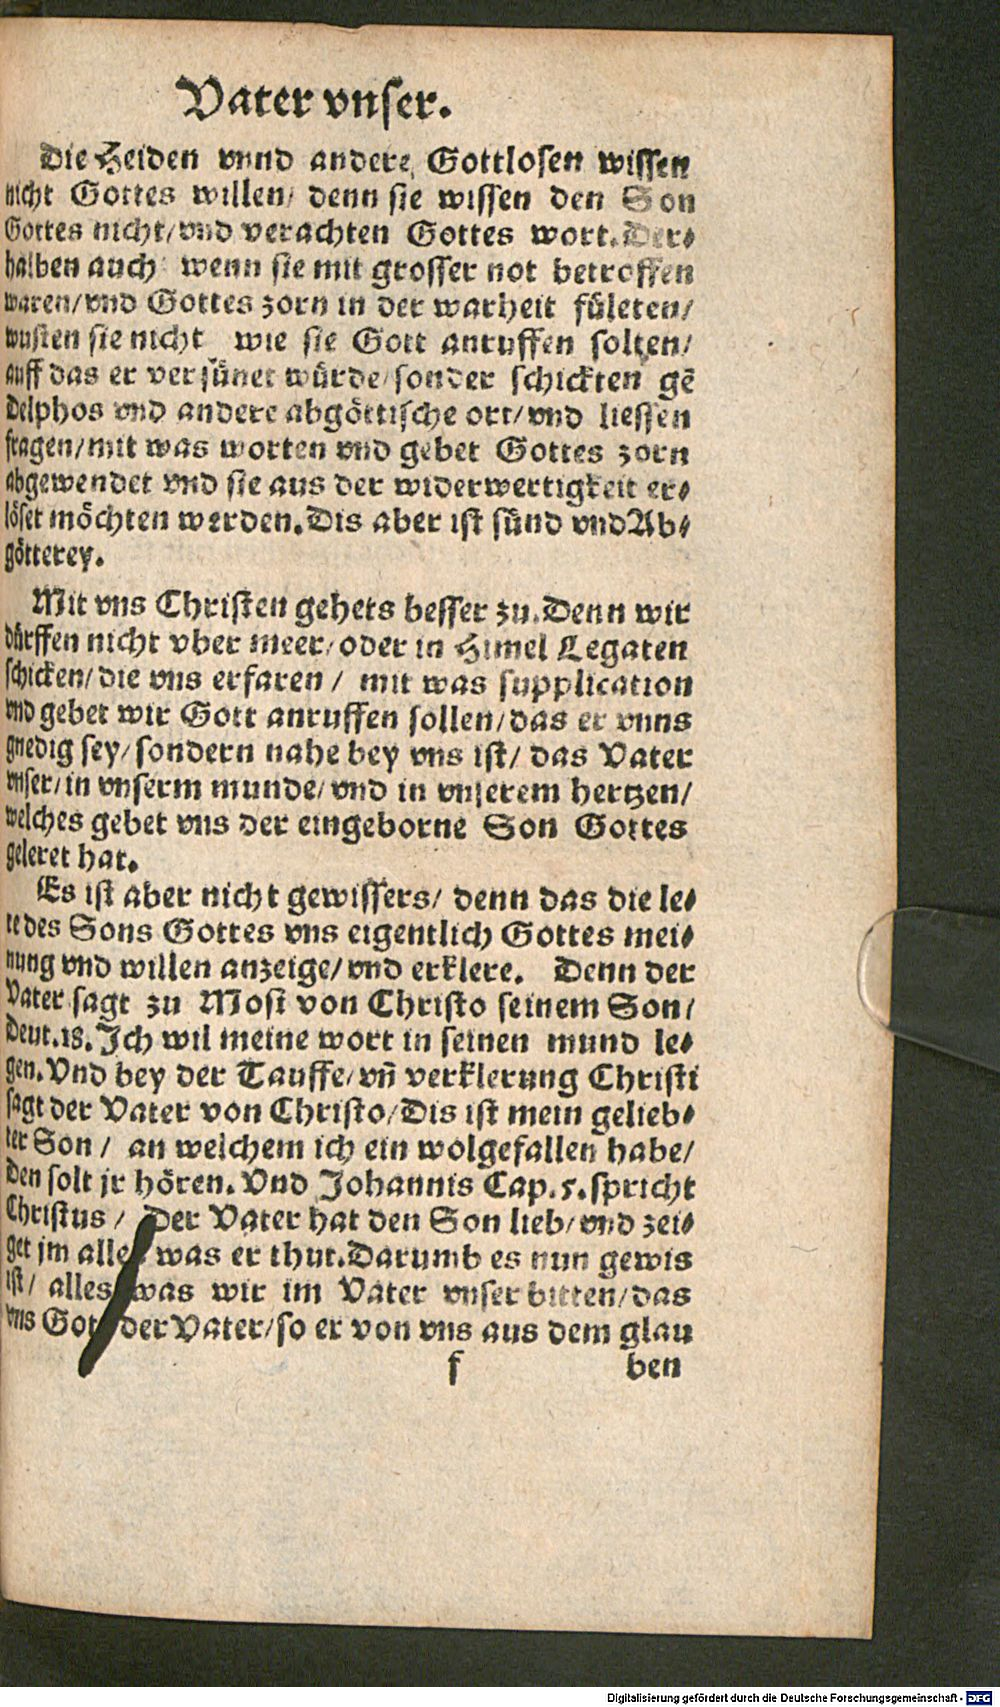 Vater vnser.
Die Heiden vnnd andere Gottlosen wissen
nicht Gottes willen/ denn sie wissen den Son
Gottes nicht/vnd verachten Gottes wort. Der⸗
halben auch wenn sie mit grosser not betroffen
waren/vnd Gottes zorn in der warheit fületen/
wusten sie nicht wie sie Gott anruffen solten/
auff das er versünet würde/sonder schickten gē
Delphos vnd andere abgöttische ort/vnd liessen
fragen/mit was worten vnd gebet Gottes zorn
abgewendet vnd sie aus der widerwertigkeit er⸗
löset möchten werden. Dis aber ist sünd vnd Ab⸗
götterey.
Mit vns Christen gehets besser zu. Denn wir
dürffen nicht vber meer/oder in Himel Legaten
schicken/die vns erfaren/ mit was supplication
vnd gebet wir Gott anruffen sollen/das er vnns
gnedig sey/sondern nahe bey vns ist/ das Vater
vnser/in vnserm munde/vnd in vnserem hertzen/
welches gebet vns der eingeborne Son Gottes
geleret hat.
Es ist aber nicht gewissers/ denn das die le⸗
re des Sons Gottes vns eigentlich Gottes mei⸗
nung vnd willen anzeige/vnd erklere. Denn der
Vater sagt zu Mosi von Christo seinem Son/
Deut.18. Ich wil meine wort in seinen mund le⸗
gen. Vnd bey der Tauffe/vñ verklerung Christi
sagt der Vater von Christo/Dis ist mein gelieb⸗
ter Son/ an welchem ich ein wolgefallen habe/
Den solt jr hören. Vnd Johannis Cap.5. spricht
Christus/ Der Vater hat den Son lieb/vnd zei⸗
get jm alles was er thut. Darumb es nun gewis
ist/ alles was wir im Vater vnser bitten/das
vns Gott der Vater/so er von vns aus dem glau
f ben
Digitalisierung gefördert durch die Deutsche Forschungsgemeinschaft - DFG